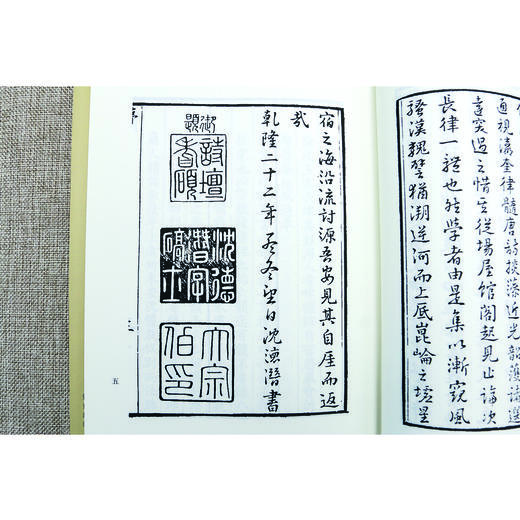 通視瀛奎律髓唐詩掞藻近光韶濩諸選
達突過之惜其從場屋館閣起見止論次
長律一體也然學者由是集以漸窺風
騷漢魏譬猶溯逆河而上底崑崙之墟星
宿之海沿流討源吾安見其自厓而返
哉
乾隆二十二年孟冬望日沈德潛書
御題
詩壇
耆碩
沈德
潛字
碻士
大宗
伯印
序
五